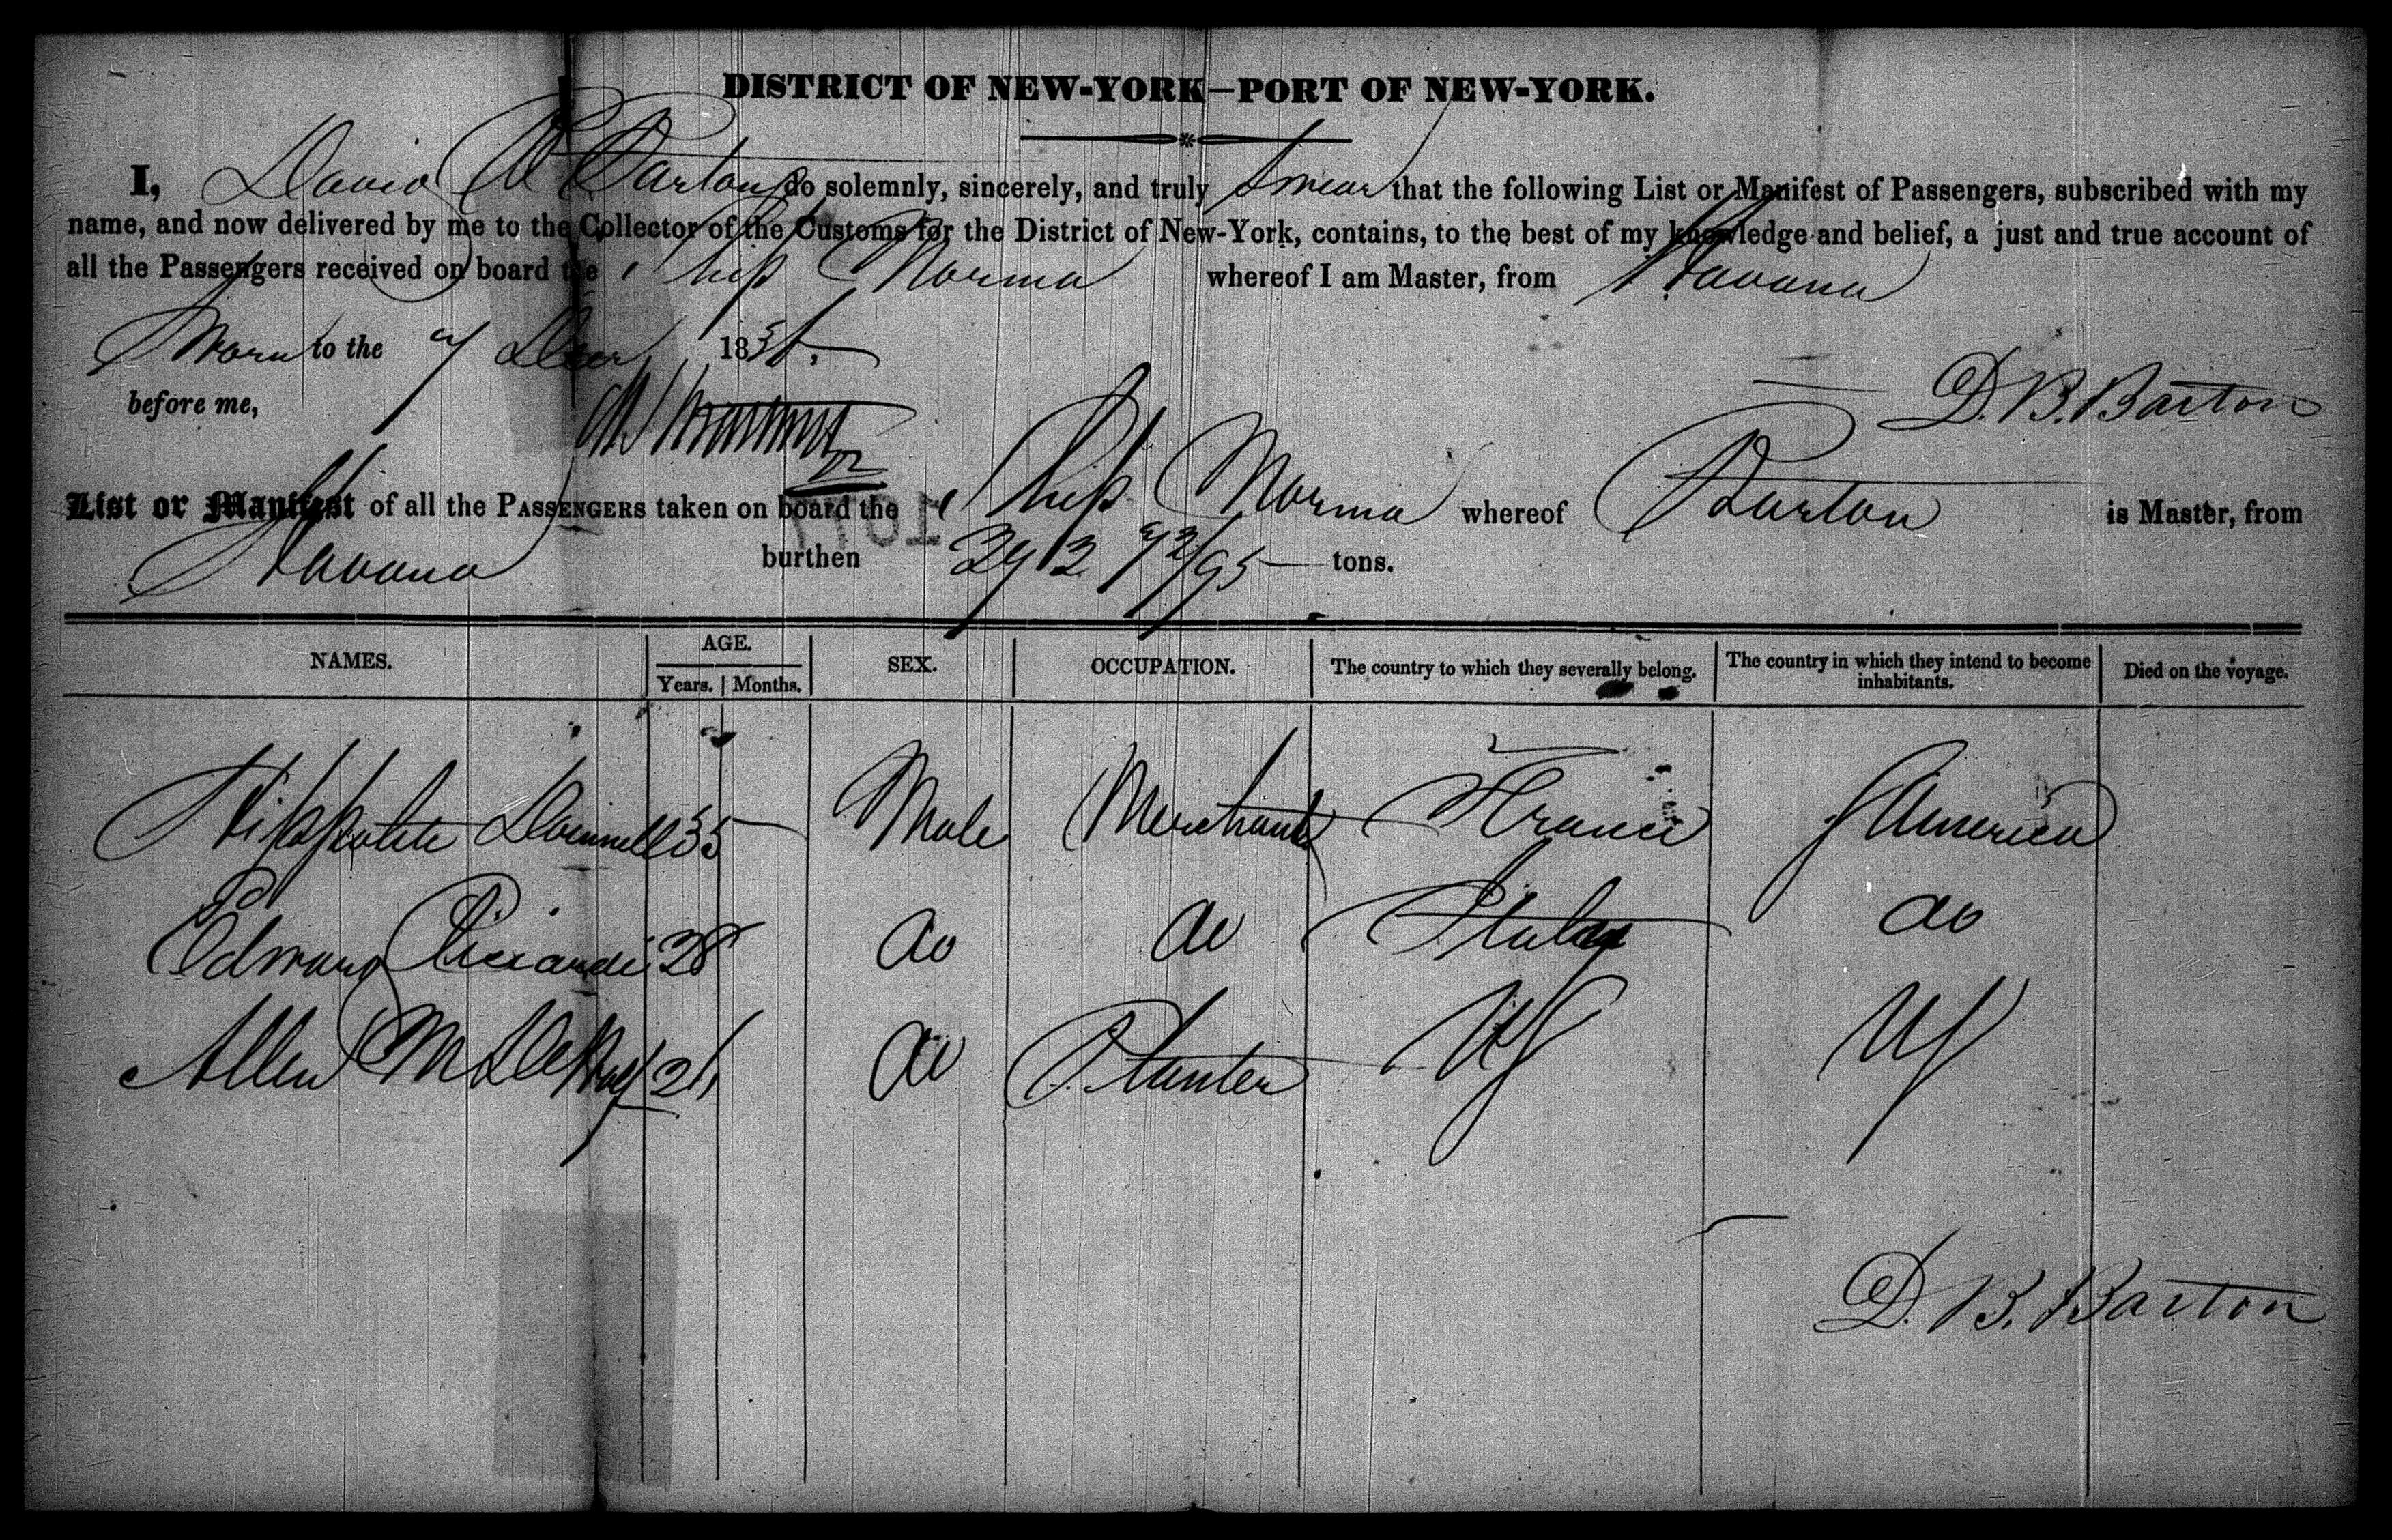 DISTRICT OF NEW-YORK—PORT OF NEW-YORK.
I, David B Barton do solemnly, sincerely, and truly Swear that the following List or Manifest of Passengers, subscribed with my
name, and now delivered by me to the Collector of the Customs for the District of New-York, contains, to the best of my knowledge and belief, a just and true account of
all the Passengers received on board the Ship Norma whereof I am Master, from Havana
Sworn to the 7 Decr 183
before me,
D. B. Barton
List or Manifest of all the PASSENGERS taken on board the Ship Norma whereof Barton is Master, from
Havana burthen 292 72/95 tons.
NAMES. AGE. SEX. OCCUPATION. The country to which they severally belong. The country in which they intend to become inhabitants. Died on the voyage.
Years. Months.
Hippolite 35 Male Merchant France S America
Edward 28 do do Italy do
Allen M 26 do Planter US US
D. B. Barton